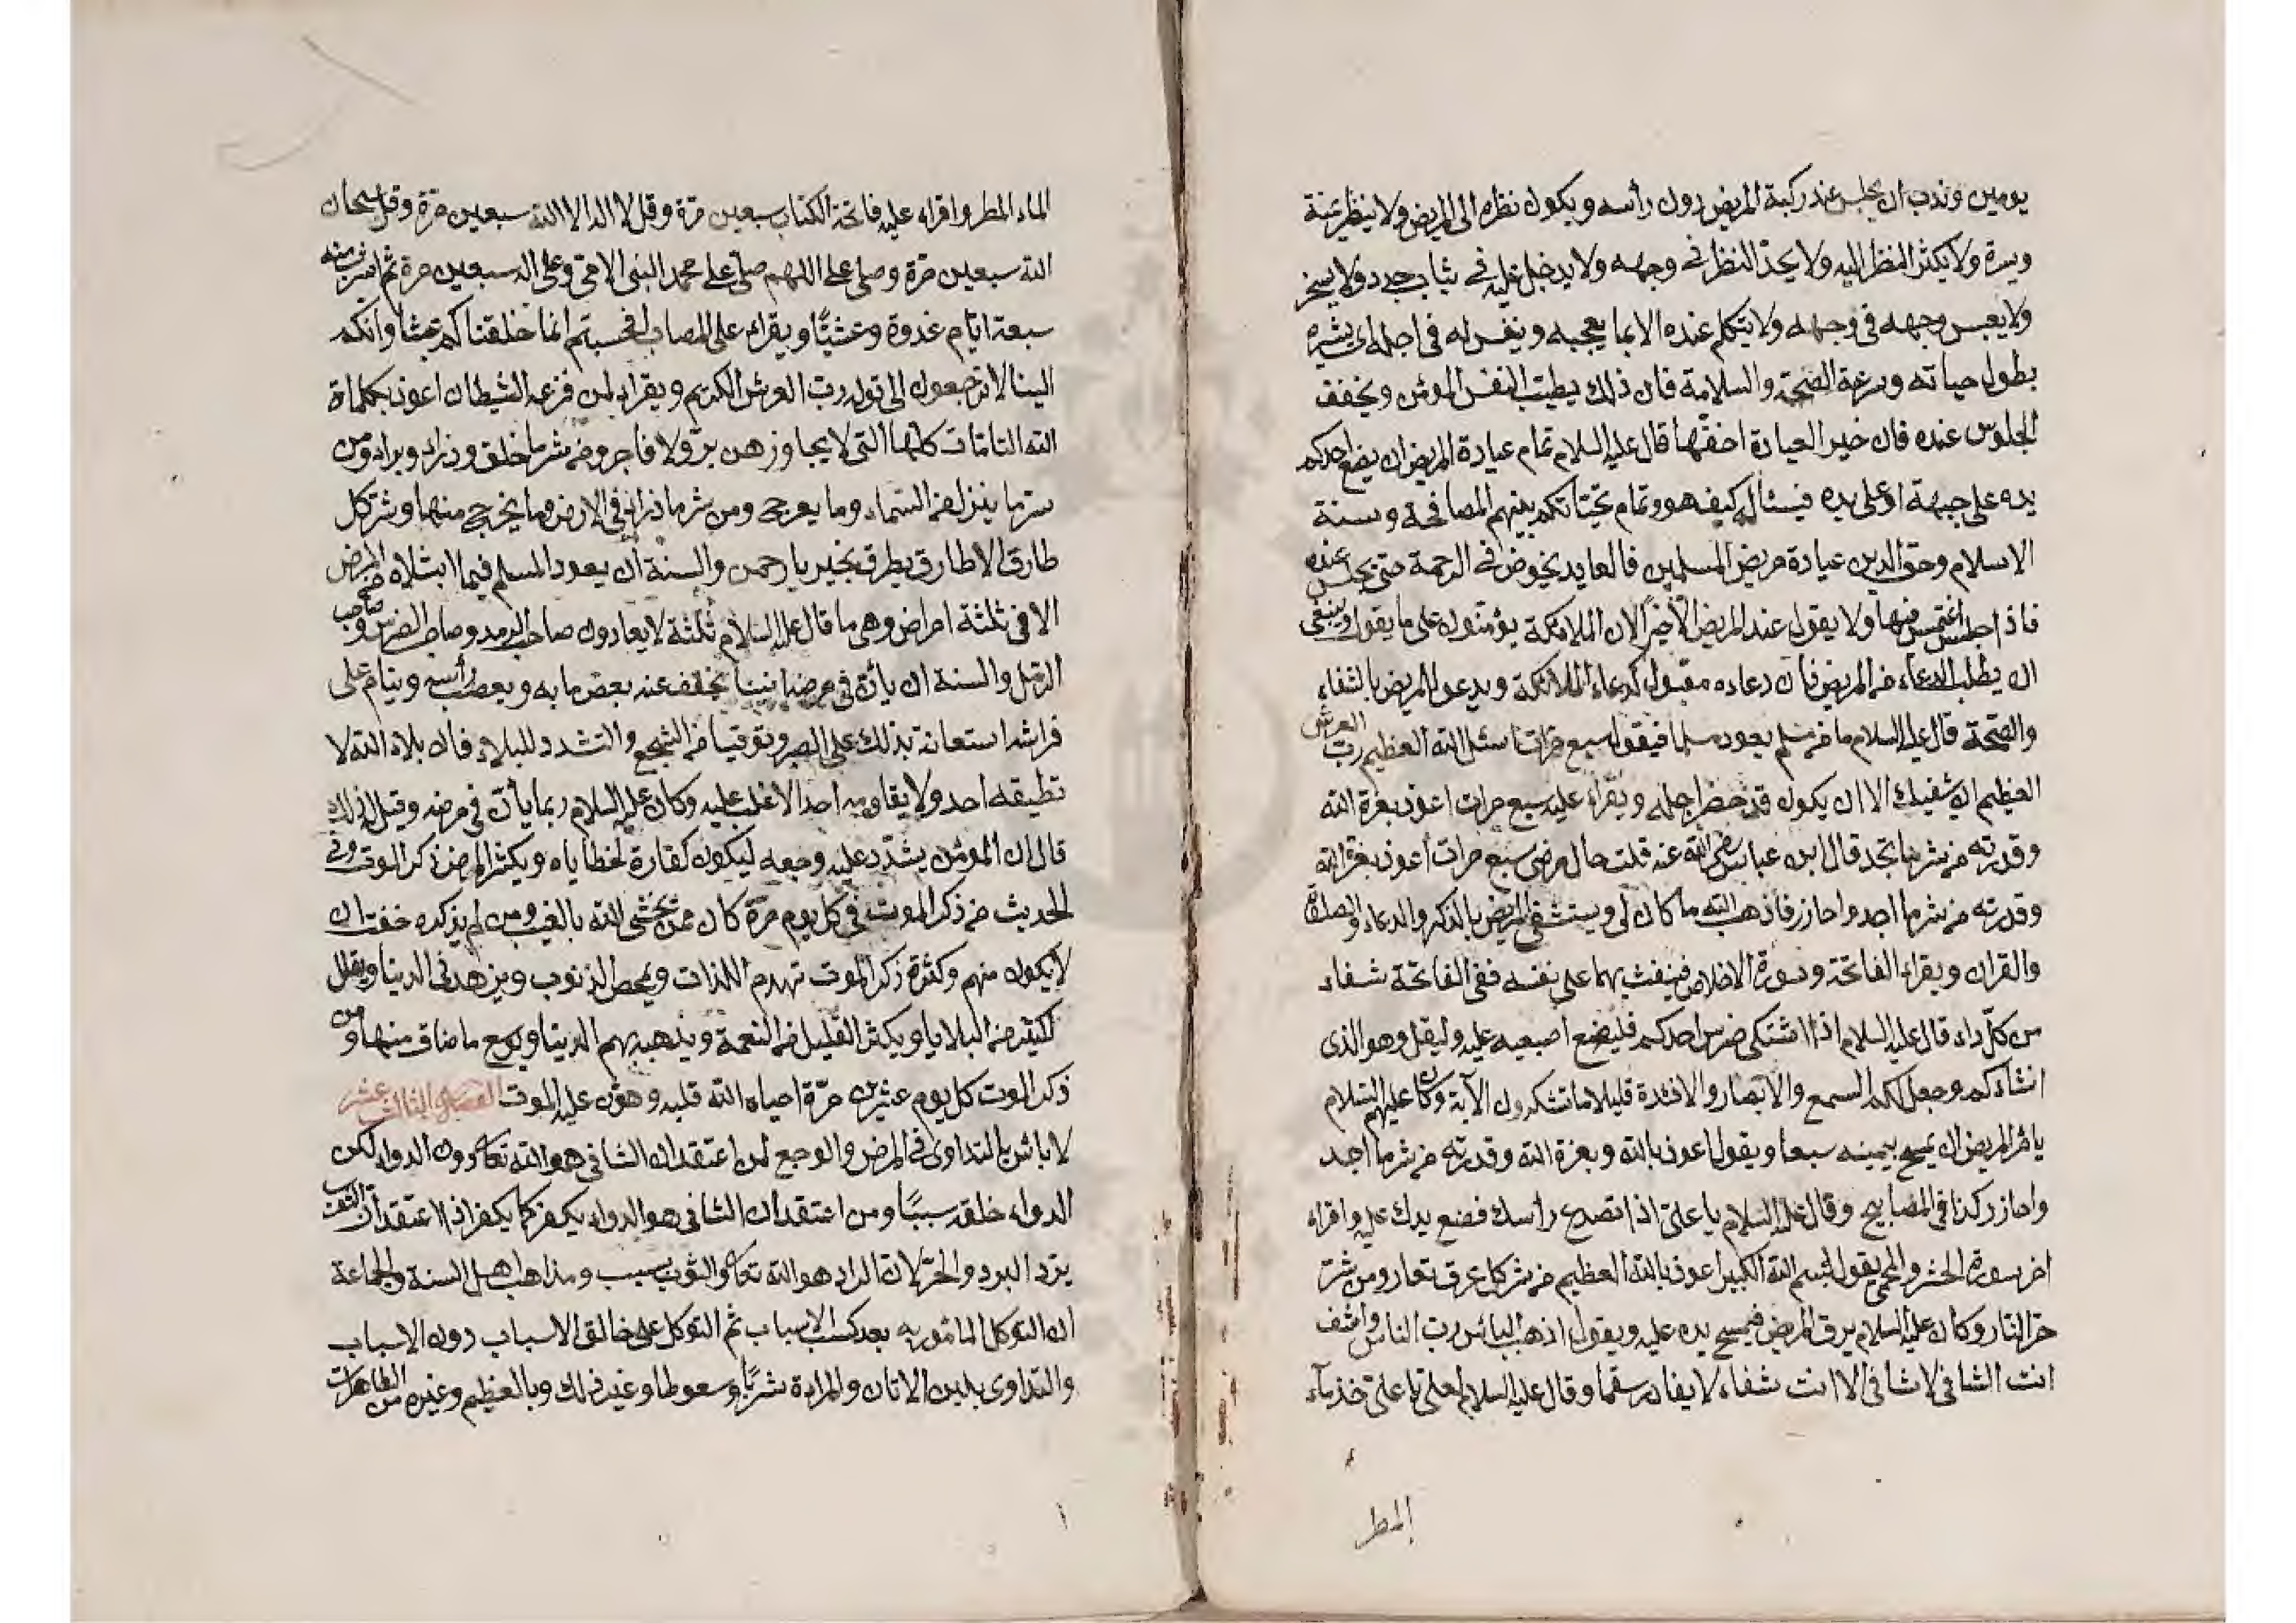 يومين وندب ان يجلس عند ركبة المريض دون رأسه ويكون نظره الى المريض ولا ينظر يمنة
ويسرة ولا يكثر النظر اليه ولا يحد النظر في وجهه ولا يدخل عليه في ثياب جدد ولا
ولا يعبس وجهه في وجهه ولا يتكلم عنده الا بما يعجبه وينفس له في اجله اى يبشره
بطول حياته وسرعة الصحة والسلامة فان ذلك يطيب النفس المؤمن ويخفف
الجلوس عنده فان خير العيادة اخفها قال عليه السلام تمام عيادة المريض ان يضع احدكم
يده على جبهة او على يده فيسئاله كيف هو وتمام تحيتاتكم بينهم المصافحة وسنة
الاسلام وحق الدين عيادة مريض المسلمين فالعايد يخوض في الرحمة حتى يجلس عنده
فاذا جلس اغتمس فيها ولا يقول عند المريض الا خيرا لان الملائكة يؤمنون على ما يقول وينبغى
ان يطلب الدعاء من المريض فان دعاءه مقبول كدعاء الملائكة ويدعو للمريض بالشفاء
والصحة قال عليه السلام ما من مسلم يعود مسلما فيقول سبع مرات اسئل الله العظيم رب العرش
العظيم ان يشفيك الا ان يكون قد حضر اجله ويقراء عليه سبع مرات اعوذ بعزة الله
وقدرته من شر ما تجد قال ابن عباس رضى الله عنه قلت حال مرضى سبع مرات اعوذ بعزة الله
وقدرته من شر ما اجد واحاذر فاذهب الله ما كان لى ويستشفى المريض بالذكر والدعاء والصلوة
والقران ويقراء الفاتحة وسورة الاخلاص فينفث بهما على نفسه ففى الفاتحة شفاء
من كل داء قال عليه السلام اذا اشتكى ضرس احدكم فليضع اصبعيه عليه وليقل وهو الذى
انشاءكم وجعل لكم السمع والابصار والافئدة قليلا ما تشكرون الآية وكان عليهم السلام
يامر المريض ان يمسح بيمينه سبعا ويقول اعوذ بالله وبعزة الله وقدرته من شر ما اجد
واحاذر كذا في المصابيح وقال عليه السلام يا على اذا تصدع رأسك فضع يدك عليه واقراء
اخر سورة الحشر وللحمى يقول بسم الله الكبير اعوذ بالله العظيم من شر كل عرق نعار ومن شر
حر النار وكان عليه السلام يرق المريض فيمسح يده عليه ويقول اذهب البائس رب الناس واشف
انت الشافى لا شافى الا انت شفاء لا يغادر سقما وقال عليه السلام لعلى يا على خذ ماء
المطر
الماء المطر واقراء عليه فاتحة الكتاب سبعين مرة وقل لا اله الا الله سبعين مرة وقل سبحان
الله سبعين مرة وصلى على اللهم صل على محمد النبى الامى وعلى اله سبعين مرة ثم اشرب منه
سبعة ايام غدوة وعشيا ويقراء على المصاب افحسبتم انما خلقناكم عبثا وانكم
الينا لا ترجعون الى قوله رب العرش الكريم ويقراء لمن فزعه الشيطان اعوذ بكلماة
الله التامات كلها التى لا يجاوزهن بر ولا فاجر ومن شر ما خلق وذراء وبراء ومن
شر ما ينزل من السماء وما يعرج ومن شر ما ذراء في الارض وما يخرج منها وشر كل
طارق الا طارق يطرق بخير يا رحمن والسنة ان يعود المسلم فيما ابتلاه من المرض
الا في ثلثة امراض وهى ما قال عليه السلام ثلثة لا يعادون صاحب الرمد وصاحب الضرس وصاحب
الدمل والسنة ان يأن في مرضه انينا يخفف عنه بعض ما به ويعصب رأسه وينام على
فراشه استعانة بذلك على الصبر وتوقيا من التشجع والتشدد للبلاء فان بلاء الله لا
تطيقه احد ولا يقاومه احد الا غلب عليه وكان عليه السلام ربما يأن في مرضه وقيل له ذلك
قال ان المؤمن يشدد عليه وجعه ليكون كفارة لخطاياه ويكثر المريض ذكر الموت وفي
الحديث من ذكر الموت في كل يوم مرة كان ممن يخشى الله بالغيب ومن لم يذكره خفت ان
لا يكون منهم وكثرة ذكر الموت تهدم اللذات ويمحص الذنوب ويزهد في الدنيا ويقلل
لكثير من البلايا ويكثر القليل من النعمة ويذهب بهم الدنيا ويوسع ما ضاق منها ومن
ذكر الموت كل يوم عشرين مرة احياه الله قلبه وهون عليه الموت الفصل الثالث عشر
لا باش بالتداوى في المرض والوجع لمن اعتقد ان الشافى هو الله تعالى دون الدواء لكن
الدواء خلقه سببا ومن اعتقد ان الشافى هو الدواء يكفر كما يكفر اذا اعتقد ان الثوب
يرد البرد والحر لان الراد هو الله تعالى والثوب سبب ومذاهب اهل السنة والجماعة
ان التوكل المامور به بعد كسب الاسباب ثم التوكل على خالق الاسباب دون الاسباب
والتداوى بلبن الاتان والمرارة شربا وسعوطا وغير ذلك وبالعظيم وغيره من الطاهرات